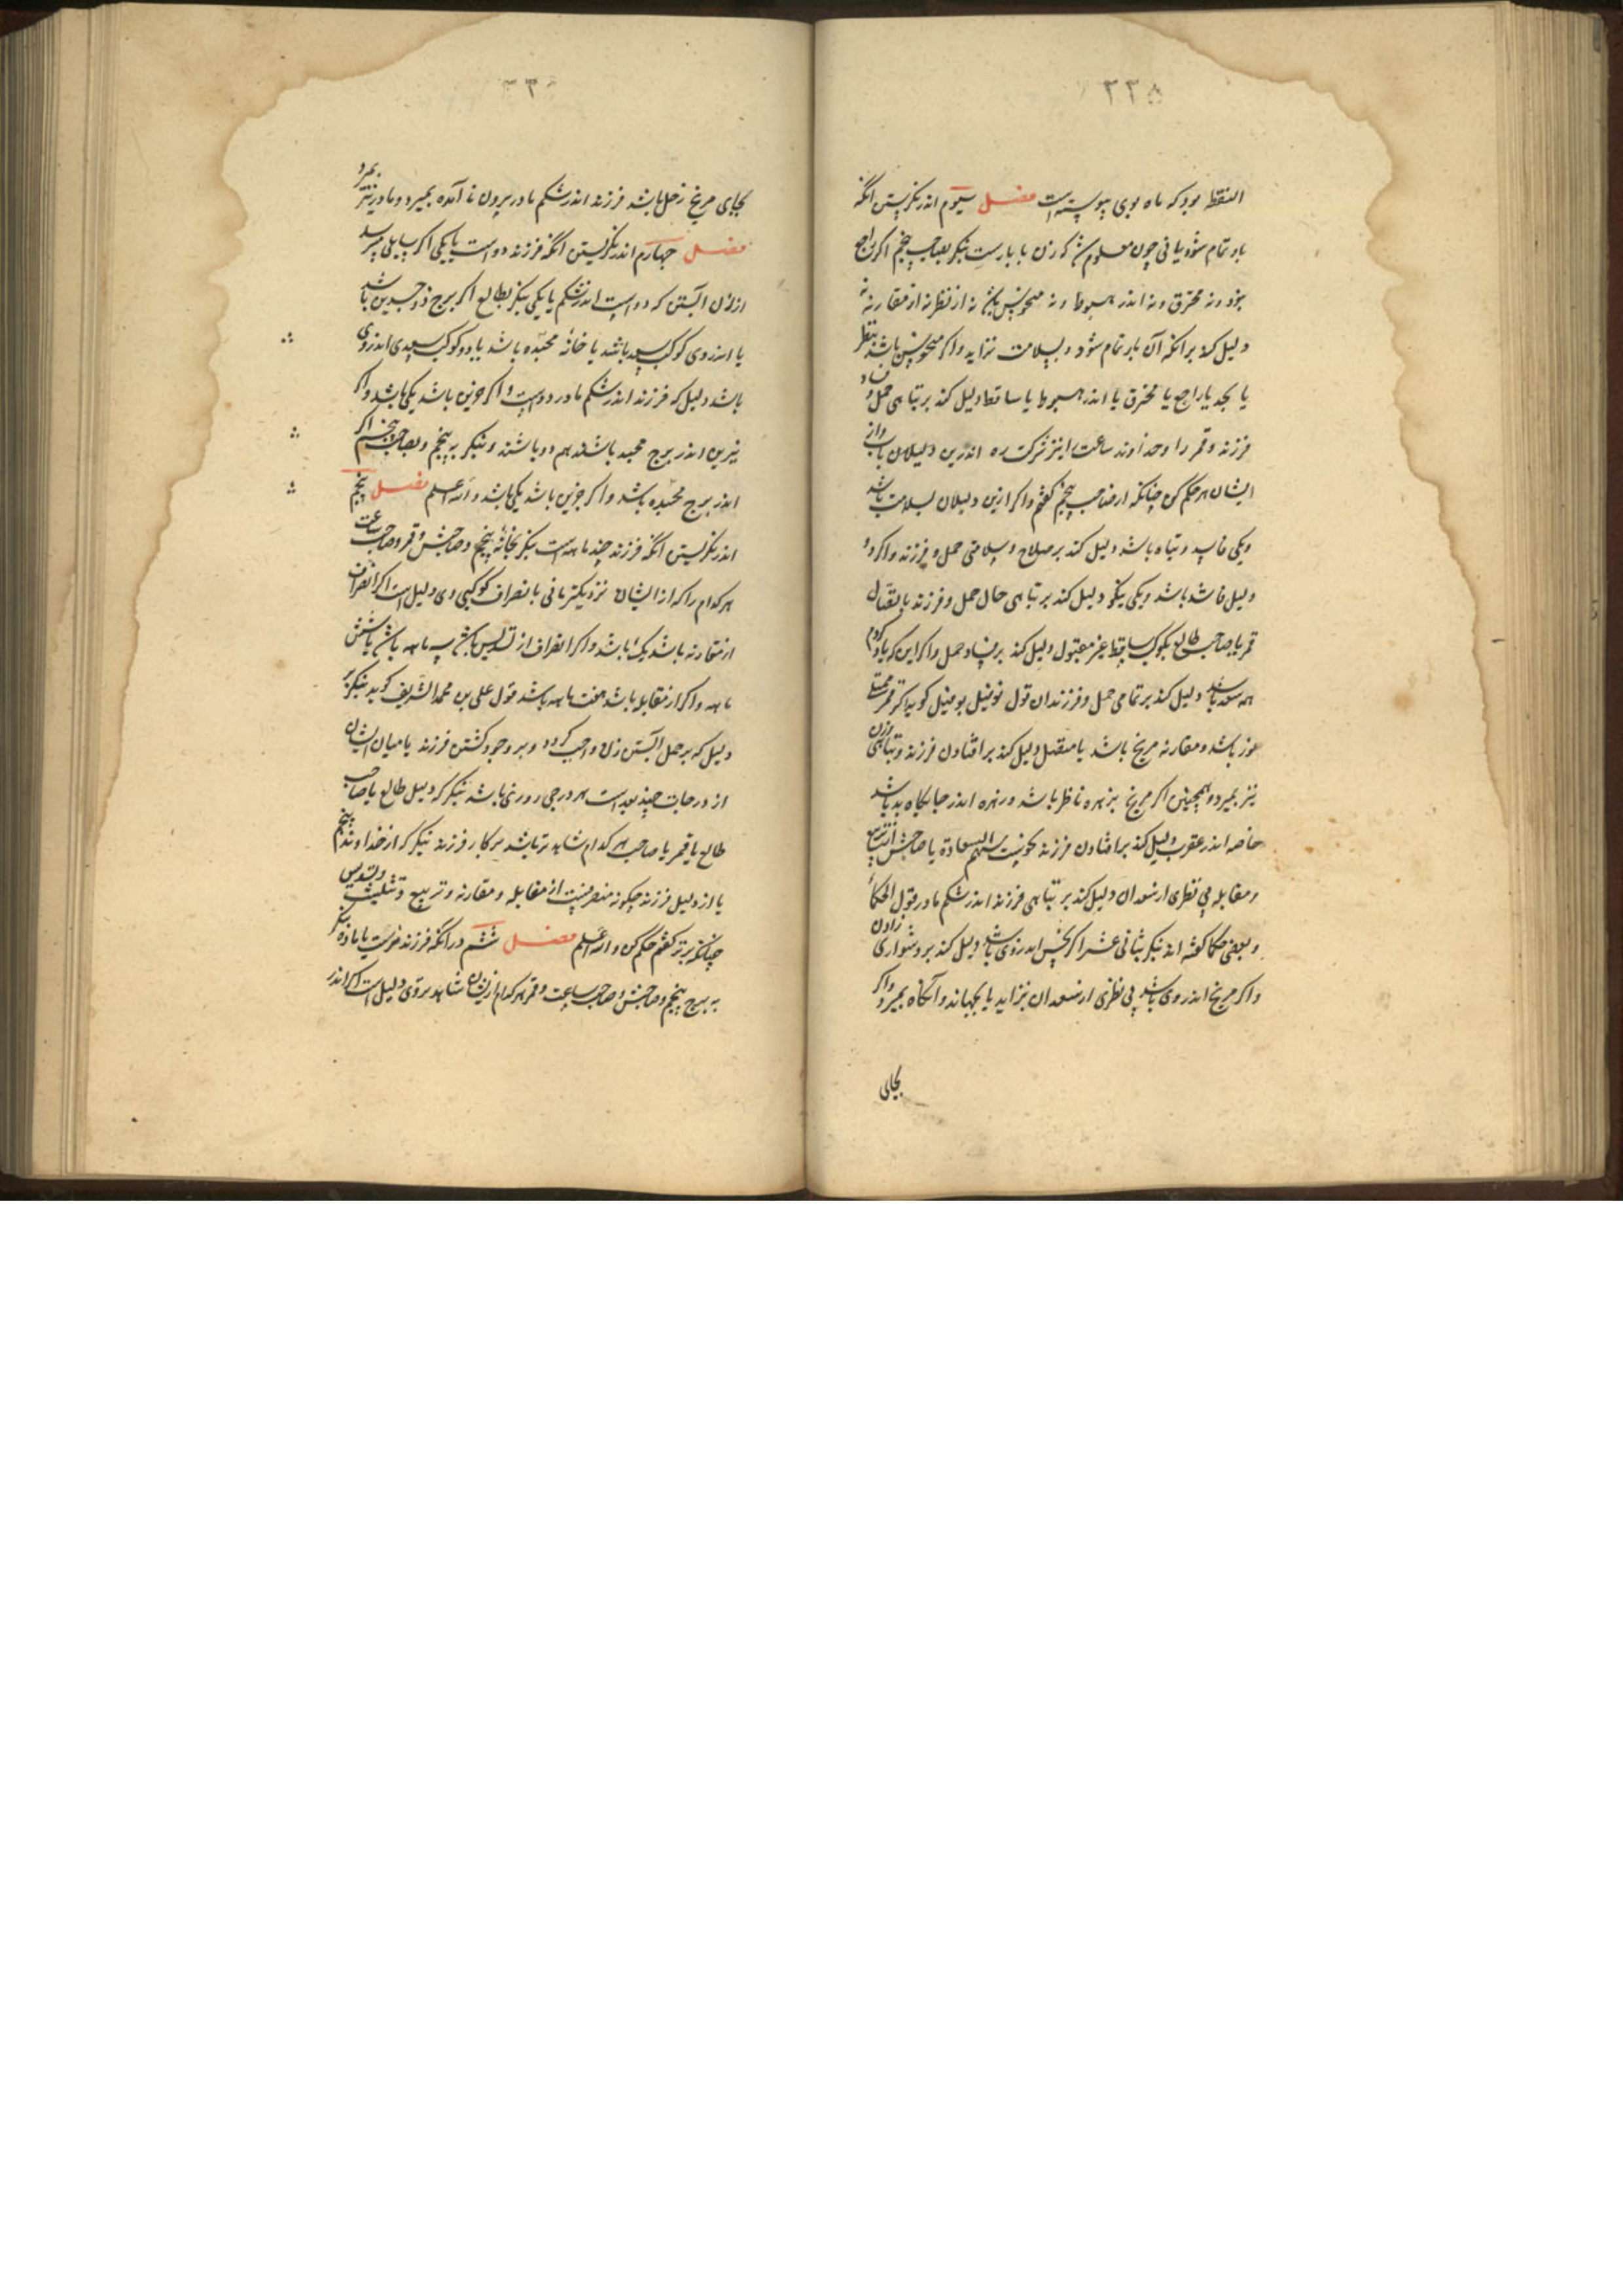 ۲۲۵
النقط بود که ماه بوی پیوسته است فصل سیوم اندر نگریستن انگه
بار تمام شود یا نی چون معلوم شد که زن با بارست بنگر بصاحب پنجم اگر راجع
بود ونه محترق ونه اندر هبوط ونه منحوس باشد نه از نظر نه از مقارنه
دلیل کند برانکه آن بار تمام شود وبسلامت بزاید واگر منحوس باشد بنظر
یا بجد یا راجع یا محترق یا اندر هبوط یا ساقط دلیل کند بر تباهی حمل و فساد
فرزند وقمر را وخداوند ساعت را نیز شرکت ده اندرین دلیلان واز
ایشان هم حکم کن چنانکه از صاحب پنجم گفتم واگر ازین دلیلان بسلامت باشد
ویکی فاسد وتباه باشد دلیل کند بر صلاح وسلامتی حمل وفرزند واگر دو
دلیل فاسد باشد ویکی نیکو دلیل کند بر تباهی حال حمل وفرزند باتصال
قمر یا صاحب طالع بکوکب ساقط غیر مقبول دلیل کند بر فساد حمل واگر این که یاد کردم
همه سعد باشد دلیل کند بر تمامی حمل وفرزندان قول نوفیل کوید اگر قمر
باشد ومقارنه مریخ باشد یا متصل دلیل کند بر افتادن فرزند وتباهی زن
نیز بمیرد وهمچنین اگر مریخ بزهره ناظر باشد وزهره اندر جایگاه بد باشد
خاصه اندر عقرب دلیل کند بر افتادن فرزند نحوست سهم السعادة یا صاحبش از تربیع
ومقابله بی نظری از سعدان دلیل کند بر تباهی فرزند اندر شکم مادر قول الحکما
وبعضی حکما گفته اند بنگر باثنی عشر اگر نحس اندر وی باشد دلیل کند بر دشواری زادن
واگر مریخ اندر وی باشد بی نظری از سعدان بزاید یا بجهاند وآنگاه بمیرد واگر
بجای
بجای مریخ زحل باشد فرزند اندر شکم مادر بیرون نا آمده بمیرد ومادر نیز بمیرد
فصل چهارم اندر نگریستن انگه فرزند دو است یا یکی اگر سایلی پرسد
از زن آبستن که دو است اندر شکم یا یکی بنگر بطالع اگر برج ذوجسدین باشد
یا اندر وی کوکب سعد باشد یا خانه مجسده باشد یا دو کوکب سعدی اندر وی
باشد دلیل که فرزند اندر شکم مادر دو است واگر جزین باشد یکی باشد واگر
نیرین اندر برج مجسد باشند هم دو باشند وبنگر به پنجم وبصاحب پنجم اگر
اندر برج مجسده باشد واگر جزین باشد یکی باشد والله اعلم فصل پنجم
اندر نگریستن انگه فرزند چند ماهه است بنگر بخانه پنجم وصاحبش وقمر وصاحب ساعت
هر کدام را که از ایشان نزدیکتر یابی بانصراف کوکبی وی دلیل است اگر انصراف
از مقارنه باشد یک ماهه باشد واگر انصراف از تسدیس باشد سه ماهه باشد یا شش
ماهه واگر از مقابله باشد هفت ماهه باشد قول علی بن محمد الشریف کوید بنگر بر
دلیل که بر حمل آبستن زن واجب کرد وبر وجود گشتن فرزند یا میان ایشان
از درجات چند بعد است هر درجی روزی باشد بنگر که دلیل طالع یا صاحب
طالع یا قمر یا صاحب هر کدام شاهد تر باشد بر کار فرزند بنگر که از خداوند پنجم
یا از دلیل فرزند چگونه منصرفست از مقابله ومقارنه وتربیع وتثلیث وتسدیس
چنانکه برتر گفتم حکم کن والله اعلم فصل ششم در انگه فرزند نر است یا ماده بنگر
به برج پنجم وصاحبش وصاحب ساعت وقمر هر کدام ازین شاهد بر وی دلیل است اگر اندر